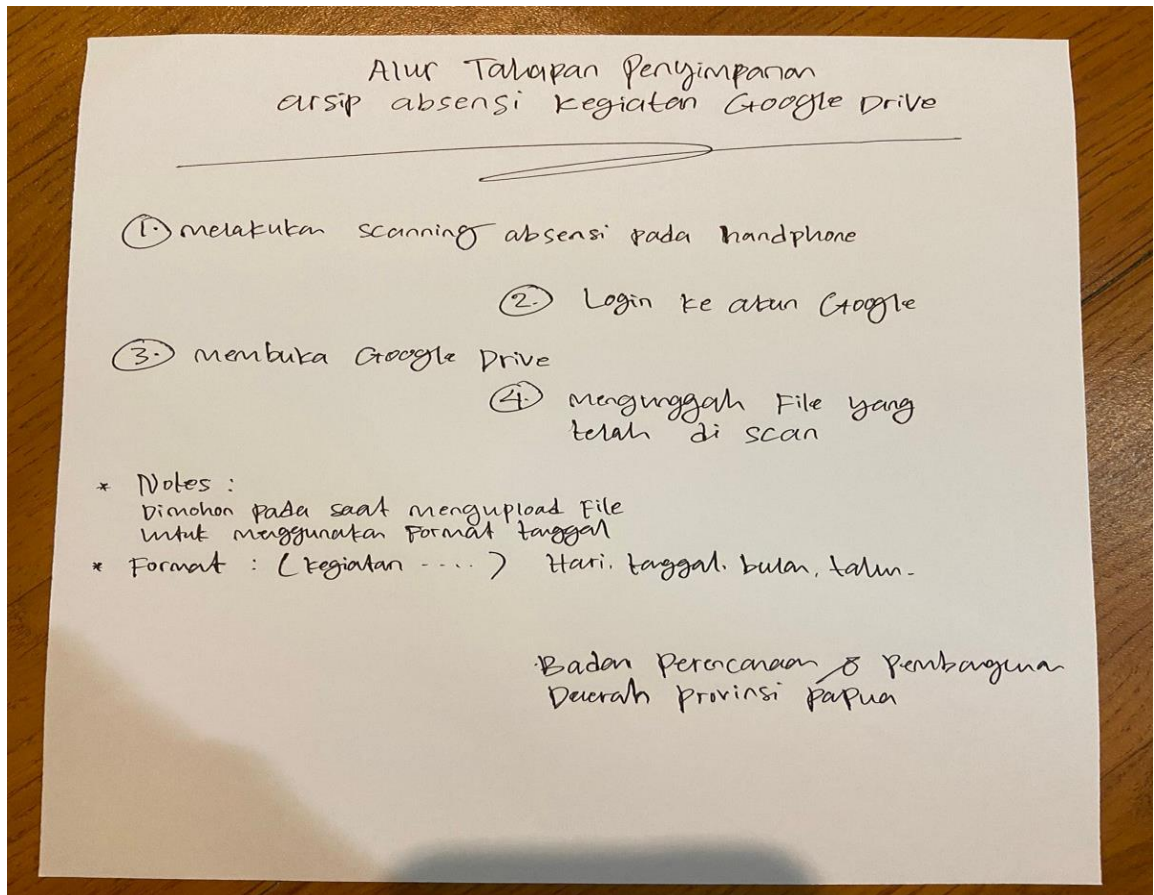 Alur Tahapan Penyimpanan
arsip absensi kegiatan Google Drive
1. melakukan scanning absensi pada handphone
2. Login ke akun Google
3. membuka Google Drive
4. mengunggah File yang
telah di scan
* Notes :
Dimohon pada saat mengupload File
untuk menggunakan Format tanggal
* Format : (kegiatan ....) Hari. tanggal. bulan, tahun.
Badan Perencanaan & Pembangunan
Daerah Provinsi Papua